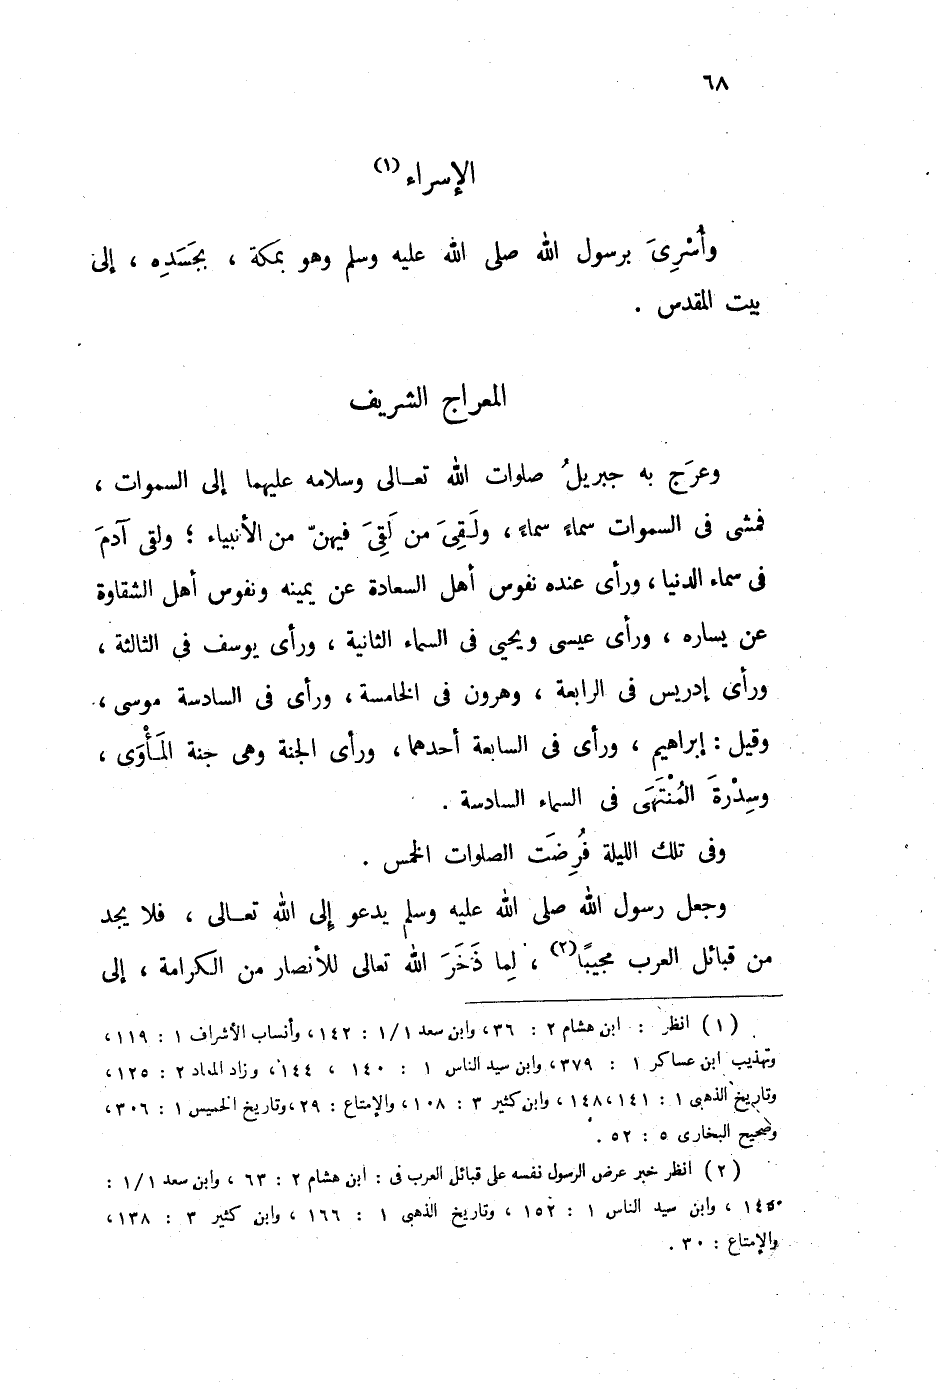 ٦٨
الإسراء (١)
وأُسْرِىَ برسول الله صلى الله عليه وسلم وهو بمكة ، بجَسَدِه ، إلى
بيت المقدس .
المعراج الشريف
وعرَج به جبريلُ صلوات الله تعـالى وسلامه عليهما إلى السموات ،
فمشى فى السموات سماءً سماءً ، ولَـقِىَ من لَقِىَ فيهنّ من الأنبياء ؛ ولقى آدمَ
فى سماء الدنيا ، ورأى عنده نفوس أهل السعادة عن يمينه ونفوس أهل الشقاوة
عن يساره ، ورأى عيسى ويحيى فى السماء الثانية ، ورأى يوسف فى الثالثة ،
ورأى إدريس فى الرابعة ، وهرون فى الخامسة ، ورأى فى السادسة موسى ،
وقيل : إبراهيم ، ورأى فى السابعة أحدهما ، ورأى الجنة وهى جنة المَـأْوَى ،
وسِدْرةَ المُنْتَهَى فى السماء السادسة .
وفى تلك الليلة فُرِضَت الصلوات الخمس .
وجعل رسول الله صلى الله عليه وسلم يدعو إلى الله تعـالى ، فلا يجد
من قبائل العرب مجيبًا (٢) ، لِما ذَخَرَ الله تعالى للأنصار من الكرامة ، إلى
(١) انظر : ابن هشام ٢ : ٣٦ ، وابن سعد ١/١ : ١٤٢ ، وأنساب الأشراف ١ : ١١٩ ،
وتهذيب ابن عساكر ١ : ٣٧٩ ، وابن سيد الناس ١ : ١٤٠ ، ١٤٤ ، وزاد المعاد ٢ : ١٢٥ ،
وتاريخ الذهبى ١ : ١٤١ ، ١٤٨ ، وابن كثير ٣ : ١٠٨ ، والإمتاع : ٢٩ ، وتاريخ الخميس ١ : ٣٠٦ ،
وصحيح البخارى ٥ : ٥٢ .
(٢) انظر خبر عرض الرسول نفسه على قبائل العرب فى : ابن هشام ٢ : ٦٣ ، وابن سعد ١/١ :
١٤٥ ، وابن سيد الناس ١ : ١٥٢ ، وتاريخ الذهبى ١ : ١٦٦ ، وابن كثير ٣ : ١٣٨ ،
والإمتاع : ٣٠ .